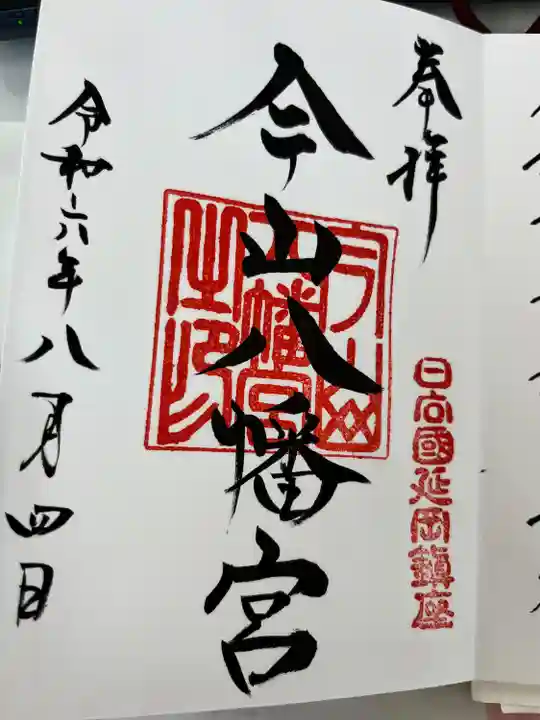 奉拝
日向國延岡鎮座
今山八幡宮
今山
八幡宮
之印
令和六年八月四日